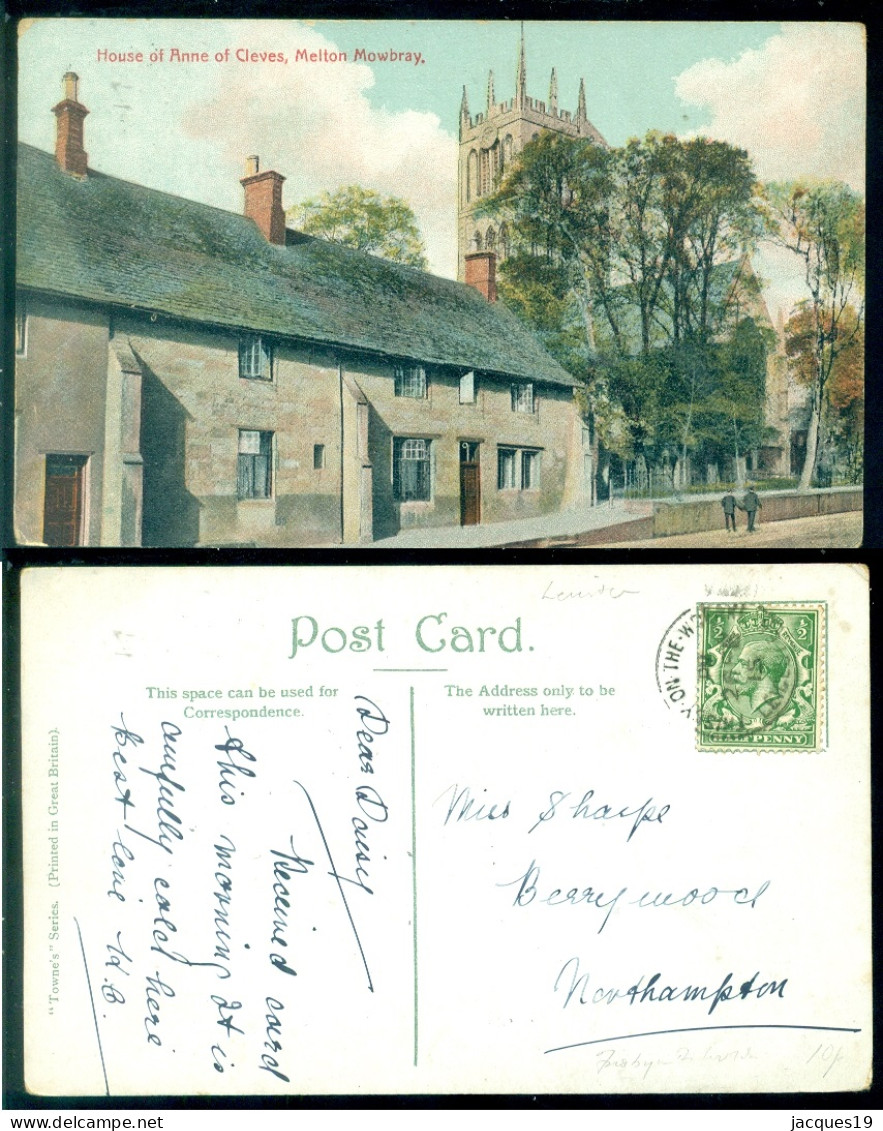 House of Anne of Cleves, Melton Mowbray.
Post Card.
This space can be used for
Correspondence.
The Address only to be
written here.
"Towne's" Series. (Printed in Great Britain).
ON-THE-W
½ ½
HALFPENNY
Dear Daisy
Received card
this morning It is
awfully cold here
best love H.C.
Miss Sharpe
Berrywood
Northampton
10p
jacques19